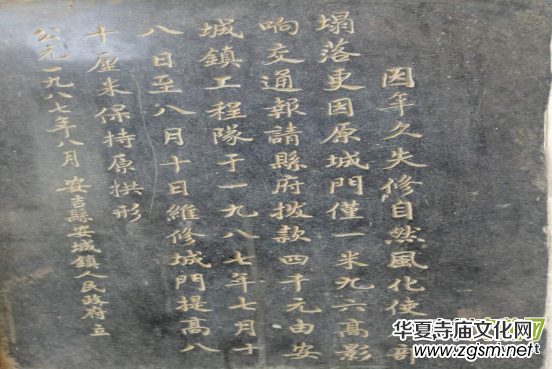 因年久失修自然風化使部
塌落更因原城門僅一米九六高影
响交通報請縣府拨款四千元由安
城鎮工程隊于一九八七年七月十
八日至八月十日維修城門提高八
十厘米保持原拱形
公元一九八七年八月 安吉縣安城鎮人民政府立
华夏寺庙文化网
www.zgsm.net